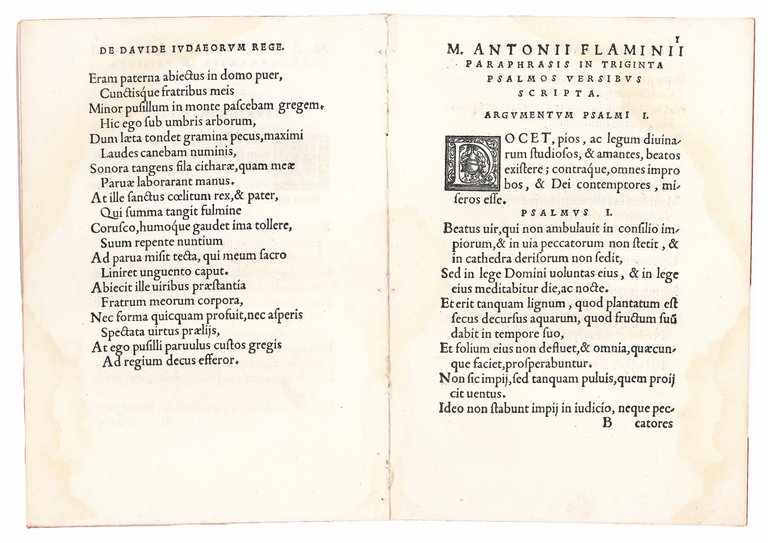 DE DAVIDE IVDAEORVM REGE.
Eram paterna abiectus in domo puer,
Cunctisque fratribus meis
Minor pusillum in monte pascebam gregem.
Hic ego sub umbris arborum,
Dum læta tondet gramina pecus, maximi
Laudes canebam numinis,
Sonora tangens fila citharæ, quam meæ
Paruæ laborarant manus.
At ille sanctus cœlitum rex, & pater,
Qui summa tangit fulmine
Corusco, humoque gaudet ima tollere,
Suum repente nuntium
Ad parua misit tecta, qui meum sacro
Liniret unguento caput.
Abiecit ille uiribus præstantia
Fratrum meorum corpora,
Nec forma quicquam profuit, nec asperis
Spectata uirtus prælijs,
At ego pusilli paruulus custos gregis
Ad regium decus efferor.
1
M. ANTONII FLAMINII
PARAPHRASIS IN TRIGINTA
PSALMOS VERSIBVS
SCRIPTA.
ARGVMENTVM PSALMI I.
DOCET, pios, ac legum diuina-
rum studiosos, & amantes, beatos
existere; contraque, omnes impro
bos, & Dei contemptores, mi-
seros esse.
PSALMVS I.
Beatus uir, qui non ambulauit in consilio im-
piorum, & in uia peccatorum non stetit, &
in cathedra derisorum non sedit,
Sed in lege Domini uoluntas eius, & in lege
eius meditabitur die, ac nocte.
Et erit tanquam lignum, quod plantatum est
secus decursus aquarum, quod fructum suū
dabit in tempore suo,
Et folium eius non defluet, & omnia, quæcun-
que faciet, prosperabuntur.
Non sic impij, sed tanquam puluis, quem proij
cit uentus.
Ideo non stabunt impij in iudicio, neque pec-
B catores